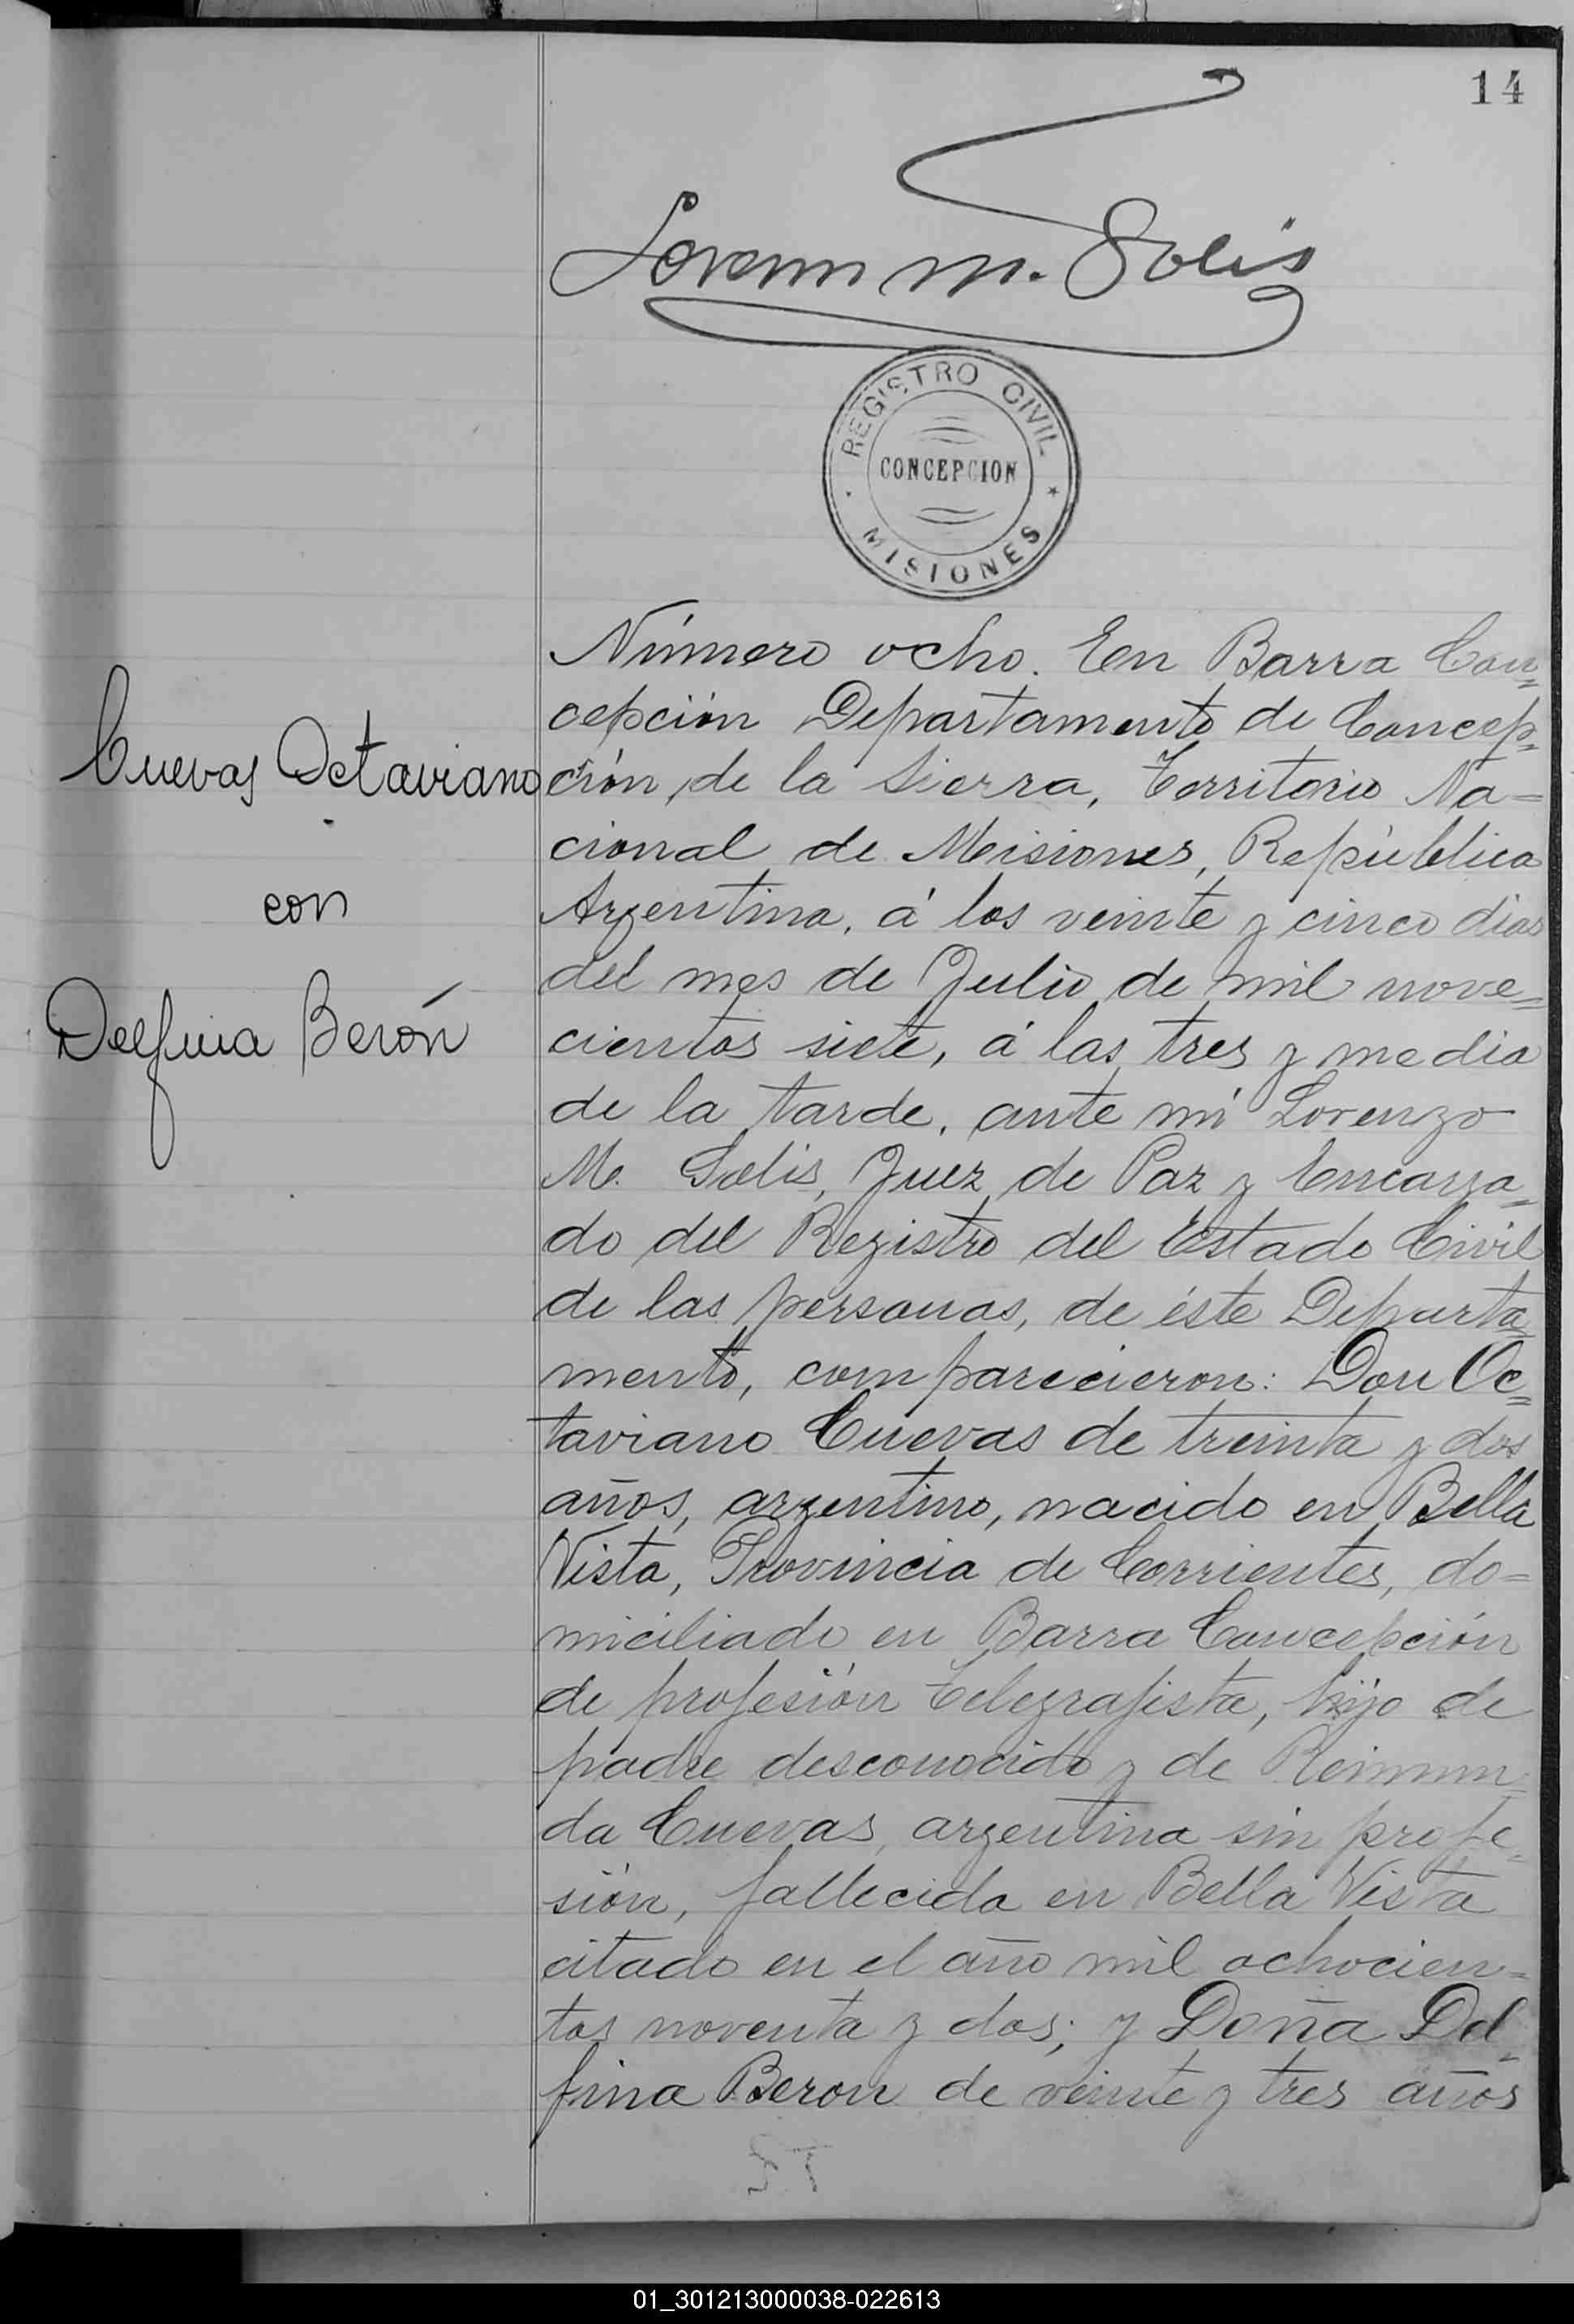 14
Lorenzo M. Solis
REGISTRO CIVIL
CONCEPCION
MISIONES
Cuevas Octaviano
con
Delfina Berón
Número ocho. En Barra Con=
cepción Departamento de Concep=
ción de la Sierra, Territorio Na=
cional de Misiones, República
Argentina, á los veinte y cinco dias
del mes de Julio de mil nove=
cientos siete, á las tres y media
de la tarde, ante mi Lorenzo
M. Solis, Juez de Paz y Encarga=
do del Registro del Estado Civil
de las personas, de éste Departa=
mento, comparecieron: Don Oc=
taviano Cuevas de treinta y dos
años, argentino, nacido en Bella
Vista, Provincia de Corrientes, do=
miciliado en Barra Concepción
de profesión telegrafista, hijo de
padre desconocido y de Reimun=
da Cuevas, argentina sin profe=
sión, fallecida en Bella Vista
citado en el año mil ochocien=
tos noventa y dos; y Doña Del=
fina Beron de veinte y tres años
01_301213000038-022613